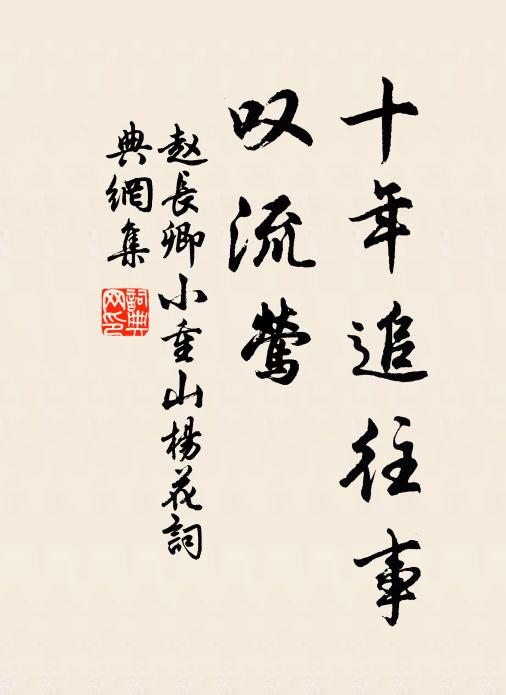 十年追往事
叹流莺
赵長卿小重山楊花詞
典網集
詞典网印